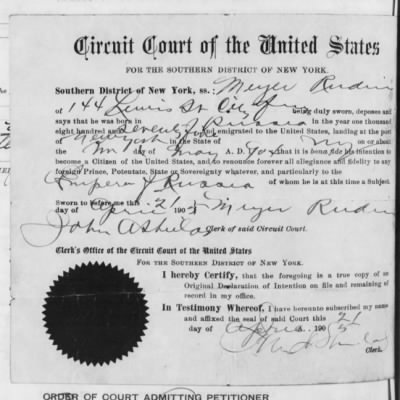 Circuit Court of the United States
FOR THE SOUTHERN DISTRICT OF NEW YORK.
Southern District of New York, ss: Meyer Rudin
of 144 Lewis St City being duly sworn, deposes and
says that he was born in Russia in the year one thousand
eight hundred and Seventy and emigrated to the United States, landing at the port
of New York in the State of N Y on or about
the day of May A. D. that it is bona fide his intention to
become a Citizen of the United States, and to renounce forever all allegiance and fidelity to any
foreign Prince, Potentate, State or Sovereignty whatever, and particularly to the
Emperor of Russia of whom he is at this time a Subject.
Sworn to before me this 21
day of April 1905 Meyer Rudin
John A Shields Clerk of said Circuit Court.
Clerk's Office of the Circuit Court of the United States
FOR THE SOUTHERN DISTRICT OF NEW YORK.
I hereby Certify, that the foregoing is a true copy of an
Original Declaration of Intention on file and remaining of
record in my office.
In Testimony Whereof, I have hereunto subscribed my name
and affixed the seal of said Court this 21
day of April 1905
Clerk.
ORDER OF COURT ADMITTING PETITIONER